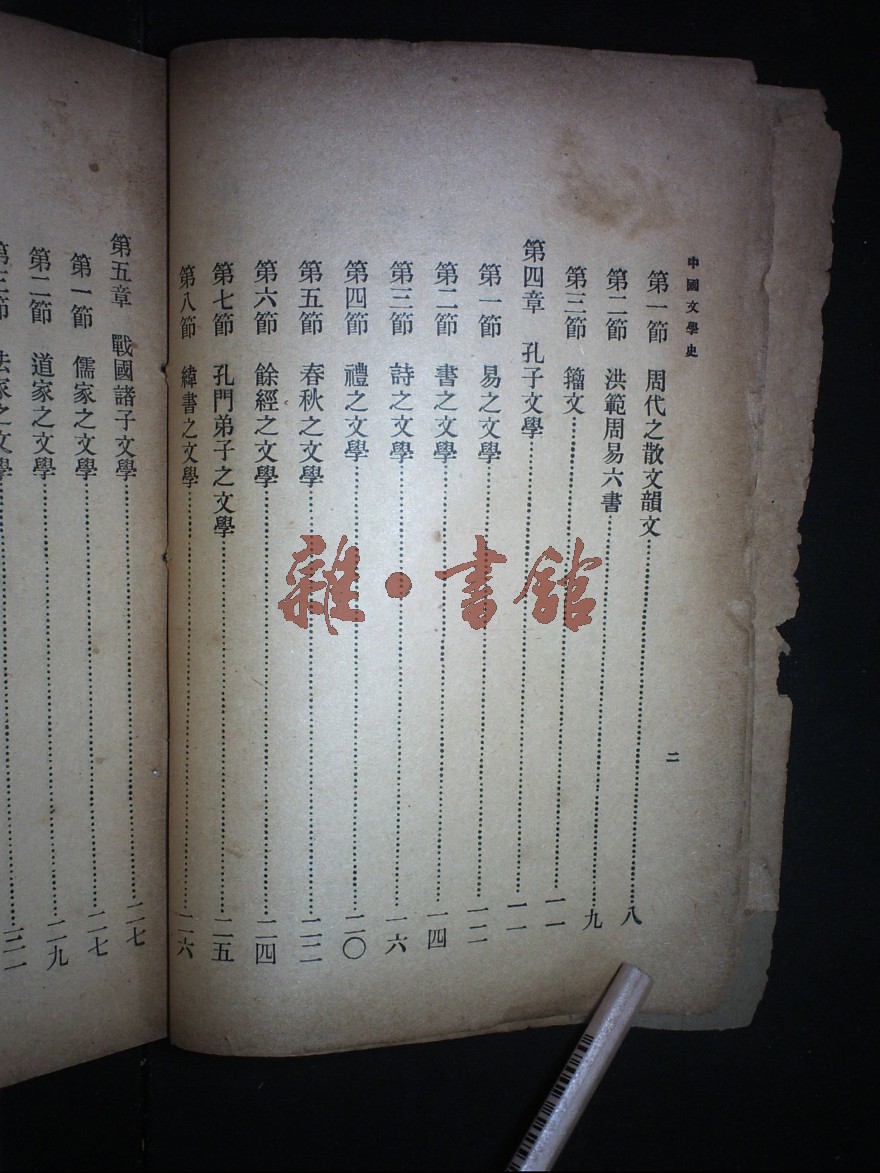 中國文學史
二
第一節 周代之散文韻文……八
第二節 洪範周易六書……九
第三節 籀文……一一
第四章 孔子文學……一一
第一節 易之文學……一二
第二節 書之文學……一四
第三節 詩之文學……一六
第四節 禮之文學……二〇
第五節 春秋之文學……二二
第六節 餘經之文學……二四
第七節 孔門弟子之文學……二五
第八節 緯書之文學……二六
第五章 戰國諸子文學……二七
第一節 儒家之文學……二七
第二節 道家之文學……二九
第三節 法家之文學……三一
雜·書館